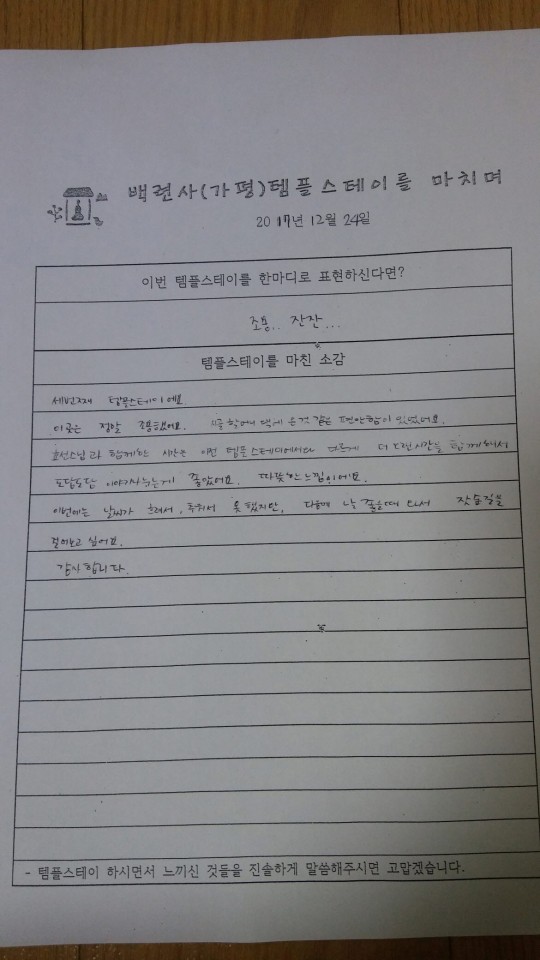 백련사(가평)템플스테이를 마치며
2017년 12월 24일
이번 템플스테이를 한마디로 표현하신다면?
조용.. 잔잔...
템플스테이를 마친 소감
세번째 템플스테이에요.
이곳은 정말 조용했어요. 시골 할머니 댁에 온것 같은 편안함이 있었어요.
효선스님과 함께한 시간은 이전 템플스테이에서와 다르게 더 오랜시간을 함께해서
도란도란 이야기나누는게 좋았어요. 따뜻한 느낌이에요.
이번에는 날씨가 흐려서, 추워서 못했지만, 다음에 날 좋을때 와서 잣숲길을
걸어보고 싶어요.
감사합니다.
- 템플스테이 하시면서 느끼신 것들을 진솔하게 말씀해주시면 고맙겠습니다.